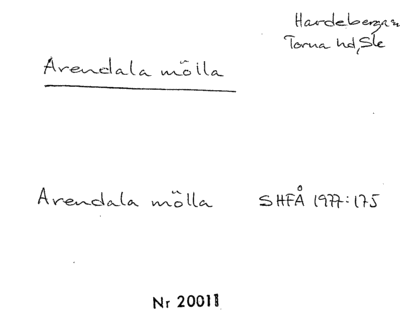 Hardeberga sn
Torna hd, Sk
Arendala mölla
Arendala mölla SHFÅ 1977:175
Nr 20011